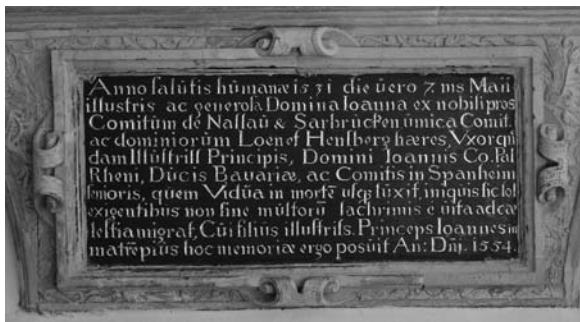 Anno salutis humanæ 1531 die vero 7 ms Maii
illustris ac generosa Domina Ioanna ex nobili pros
Comitum de Nassau & Sarbrucken unica Comit.
ac dominiorum Loen et Hensberg hæres, Vxor qu
dam Illustriss Principis, Domini Ioannis Co. Pal
Rheni, Ducis Bavariæ, ac Comitis in Spanheim
senioris, quem Vidua in morte usq luxit, sic
exigentibus non sine multorū lachrimis e vita ad cæ
lestia migrat, Cui filius illustriss. Princeps Ioannes in
matrē pius hoc memoriæ ergo posuit An: Dnj. 1554.